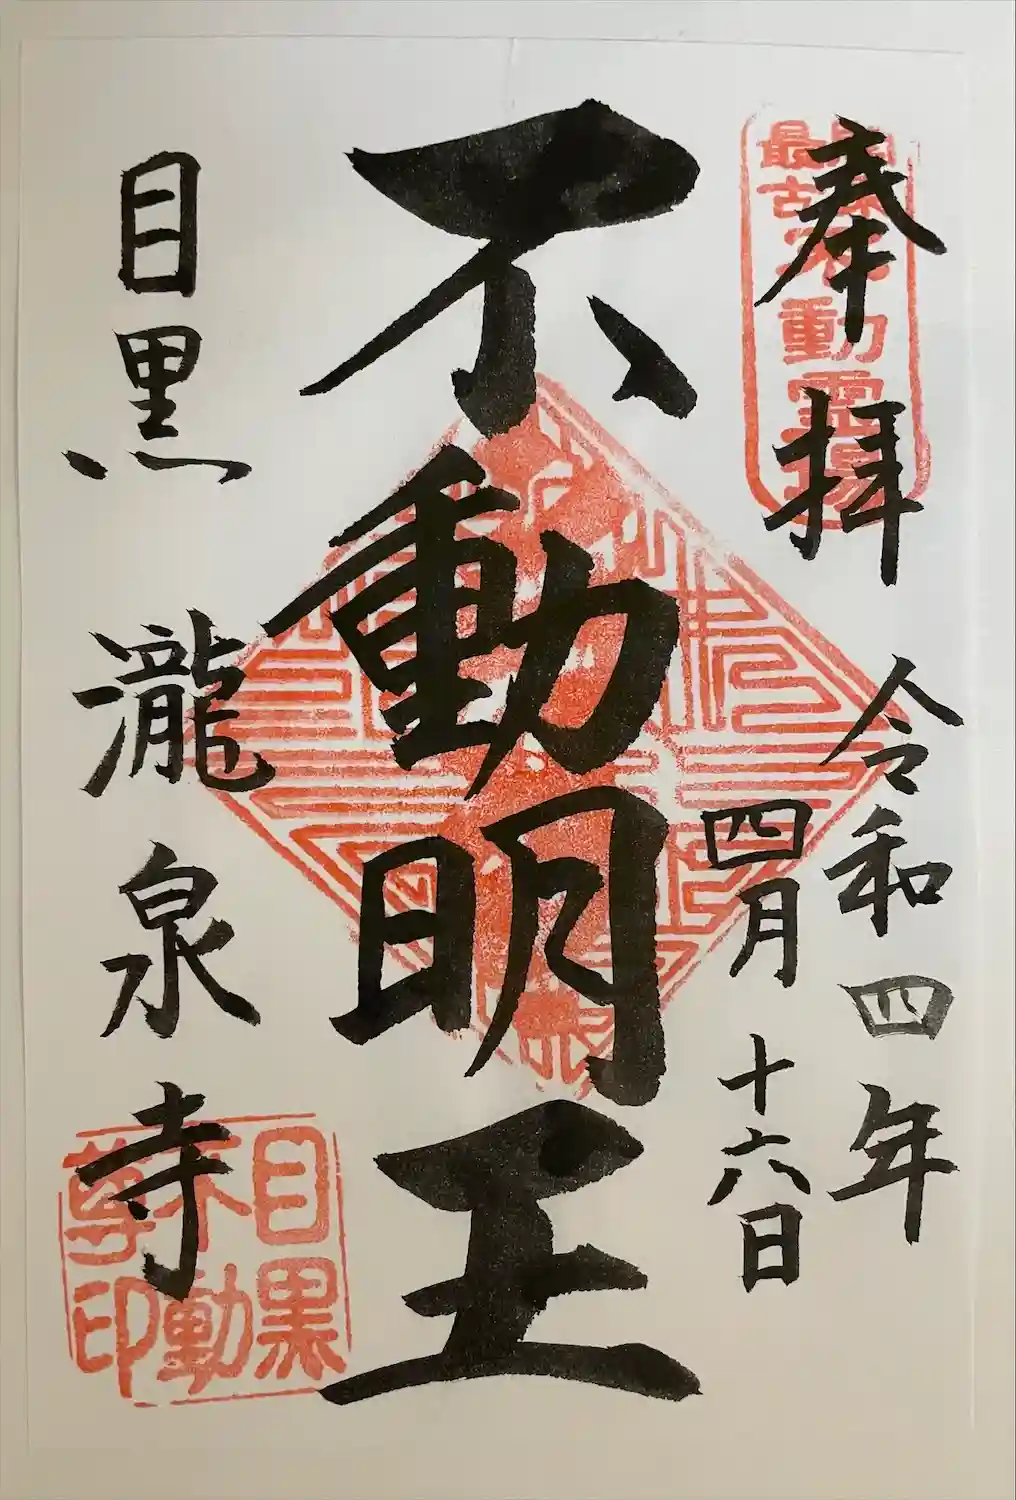 奉拝
關東最古不動霊場
令和四年
四月十六日
不動明王
目黒 瀧泉寺
目黒不動尊印